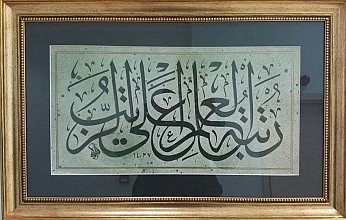 رُتْبَةُ الْعِلْمِ أَعْلَى الرُّتَبِ
١٤٣٧